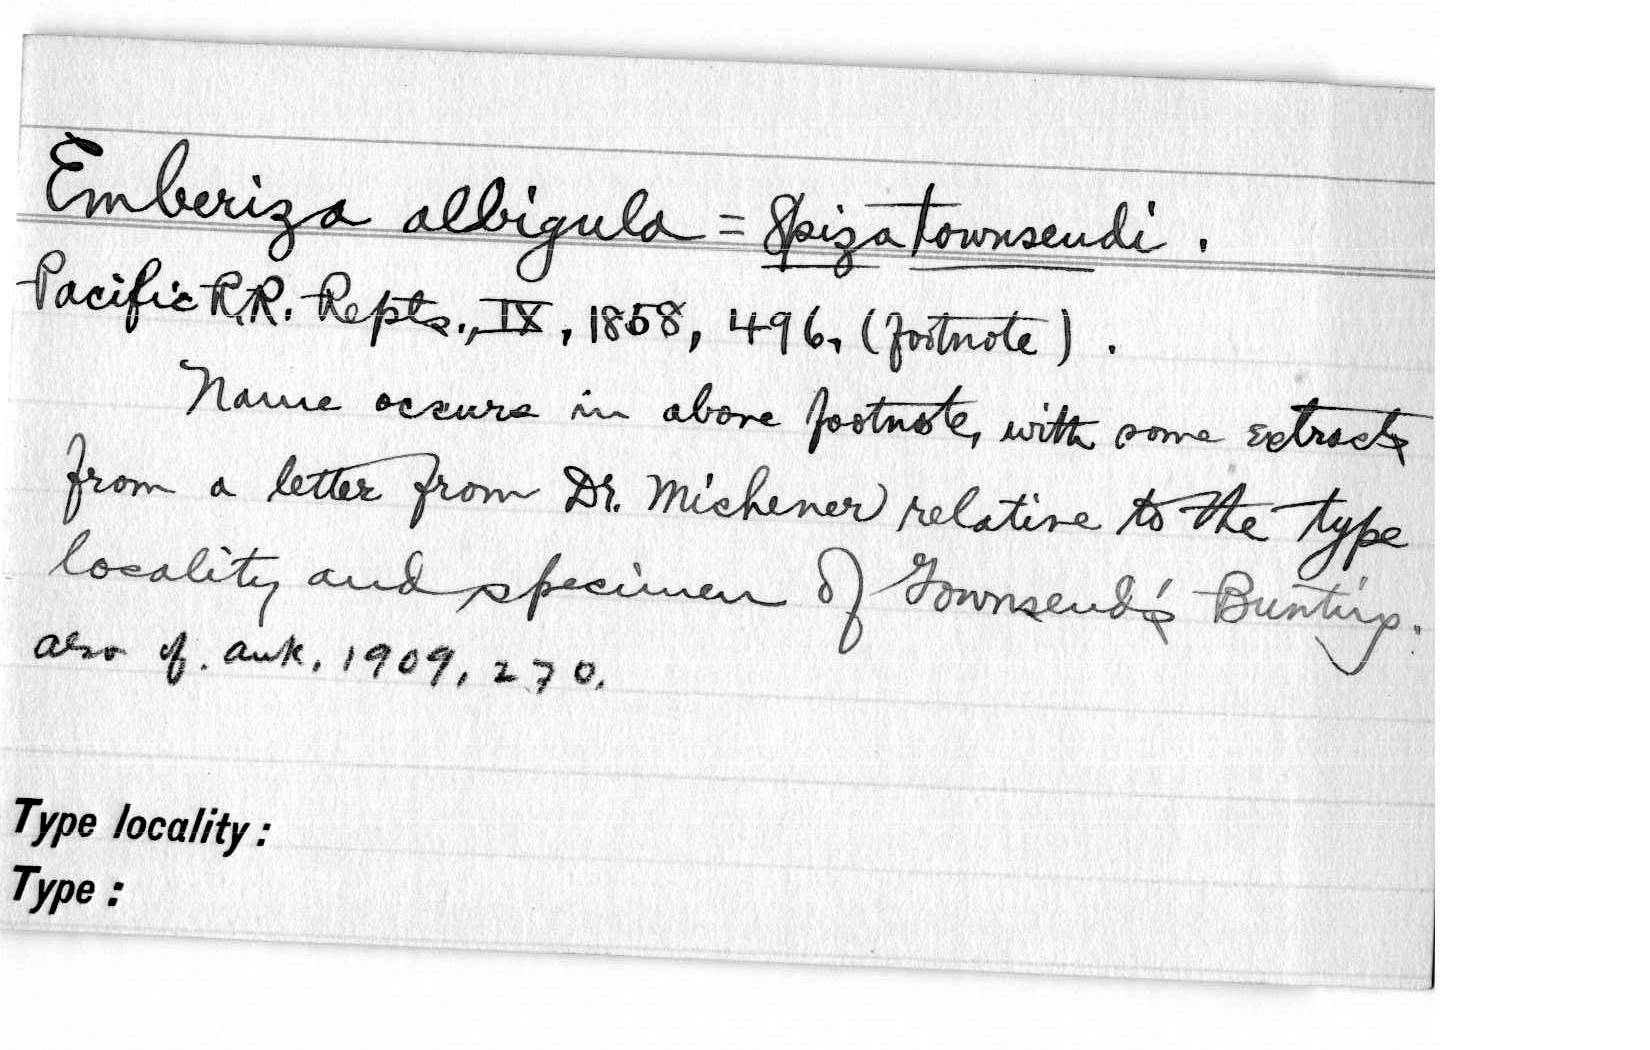 Emberiza albigula = Spiza townsendi.
Pacific R.R. Repts., IX, 1858, 496, (footnote).
Name occurs in above footnote, with some extracts
from a letter from Dr. Michener relative to the type
locality and specimen of Townsend's Bunting.
also cf. Auk, 1909, 270.
Type locality:
Type: